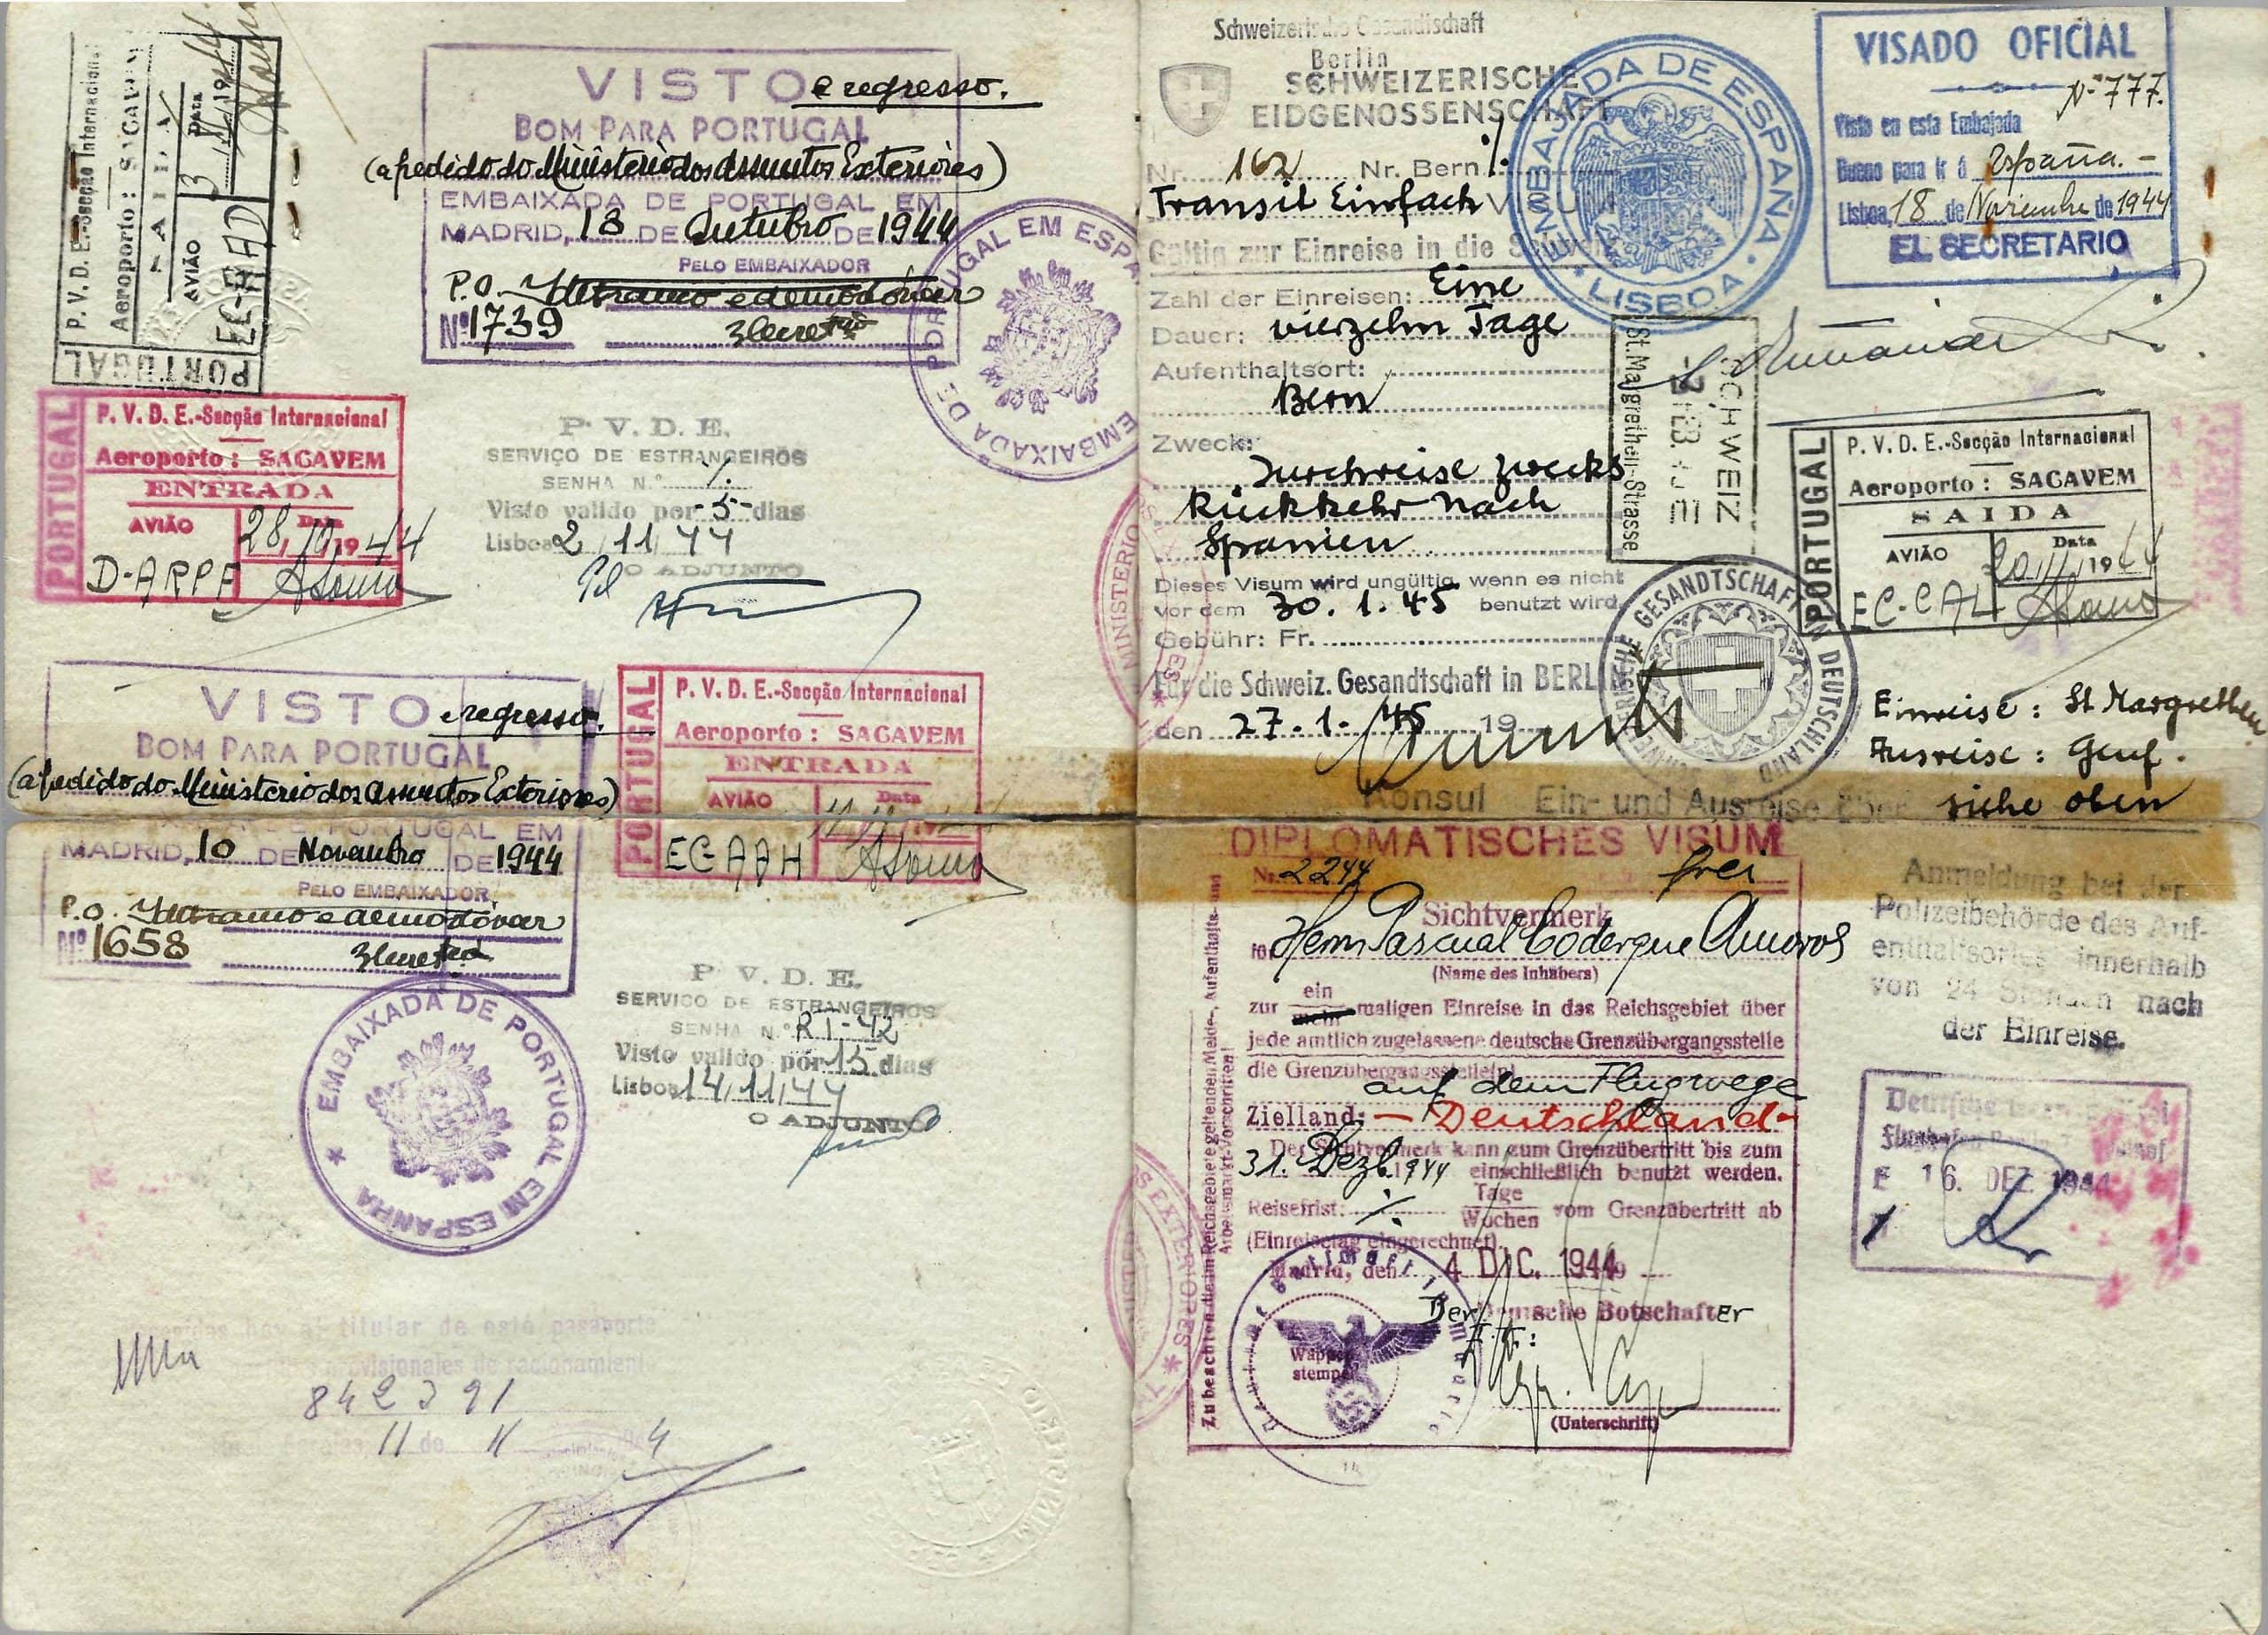 P. V. D. E.-Secção Internacional
Aeroporto: SACAVEM
SAIDA
AVIÃO
Data
3 11 1944
EC-AAD
PORTUGAL
VISTO e regresso.
BOM PARA PORTUGAL
(a pedido do Ministerio dos Assuntos Exteriores)
EMBAIXADA DE PORTUGAL EM
MADRID, 18 DE Outubro DE 1944
PELO EMBAIXADOR
P.O.
Nº 1739
EMBAIXADA DE PORTUGAL EM ESPANHA
PORTUGAL
P. V. D. E.-Secção Internacional
Aeroporto: SACAVEM
ENTRADA
AVIÃO
Data
28, 10, 1944
D-ARPF
P. V. D. E.
SERVIÇO DE ESTRANGEIROS
SENHA N.º
Visto valido por 5 dias
Lisboa 2/11/44
O ADJUNTO
VISTO e regresso.
BOM PARA PORTUGAL
(a pedido do Ministerio dos Assuntos Exteriores)
PORTUGAL EM
MADRID, 10 DE Novembro DE 1944
PELO EMBAIXADOR
P.O.
Nº 1658
EMBAIXADA DE PORTUGAL EM ESPANHA
PORTUGAL
P. V. D. E.-Secção Internacional
Aeroporto: SACAVEM
ENTRADA
AVIÃO
Data
EC-AAH
P. V. D. E.
SERVIÇO DE ESTRANGEIROS
SENHA N.º RI-42
Visto valido por 15 dias
Lisboa 14/11/44
O ADJUNTO
titular de este pasaporte
provisionales de racionamiento
842391
11 de 11
Schweizerische Gesandtschaft
Berlin
SCHWEIZERISCHE
EIDGENOSSENSCHAFT
Nr. 162 Nr. Bern
Transit Einfach
Gültig zur Einreise in die
Zahl der Einreisen: Eine
Dauer: vierzehn Tage
Aufenthaltsort:
Bern
Zweck:
Durchreise zwecks
Rückkehr nach
Spanien
Dieses Visum wird ungültig wenn es nicht
vor dem 30. 1. 45 benutzt wird
Gebühr: Fr.
Für die Schweiz. Gesandtschaft in BERLIN
den 27. 1. 45 19
Konsul
Ein- und Ausreise über siehe oben
SCHWEIZERISCHE GESANDTSCHAFT IN DEUTSCHLAND
SCHWEIZ
St. Margrethen-Strasse
EMBAJADA DE ESPAÑA
LISBOA
VISADO OFICIAL
Nº 777.
Visto en esta Embajada
Bueno para ir á España. -
Lisboa, 18 de Noviembre de 1944
EL SECRETARIO
PORTUGAL
P. V. D. E.-Secção Internacional
Aeroporto: SACAVEM
SAIDA
AVIÃO
Data
20, 11, 1944
EC-CAL
Einreise: St Margrethen
Ausreise: Genf.
DIPLOMATISCHES VISUM
Nr. 2244 frei
Sichtvermerk
für Herrn Pascual Coderque Amoros
(Name des Inhabers)
zur ein maligen Einreise in das Reichsgebiet über
jede amtlich zugelassene deutsche Grenzübergangsstelle
die Grenzübergangsstelle(n)
auf dem Flugwege
Zielland: - Deutschland -
Der Sichtvermerk kann zum Grenzübertritt bis zum
31. Dezb. 1944 einschließlich benutzt werden.
Reisefrist: Tage
Wochen vom Grenzübertritt ab
(Einreisetag eingerechnet).
Madrid, den 4 DIC. 1944
Der Deutsche Botschafter
Wappenstempel
(Unterschrift)
Zu beachten die im Reichsgebiete geltenden Melde-, Aufenthalts- und
Arbeitsmarkt-Vorschriften!
Anmeldung bei der
Polizeibehörde des Auf-
enthaltsortes innerhalb
von 24 Stunden nach
der Einreise.
E 16. DEZ. 1944